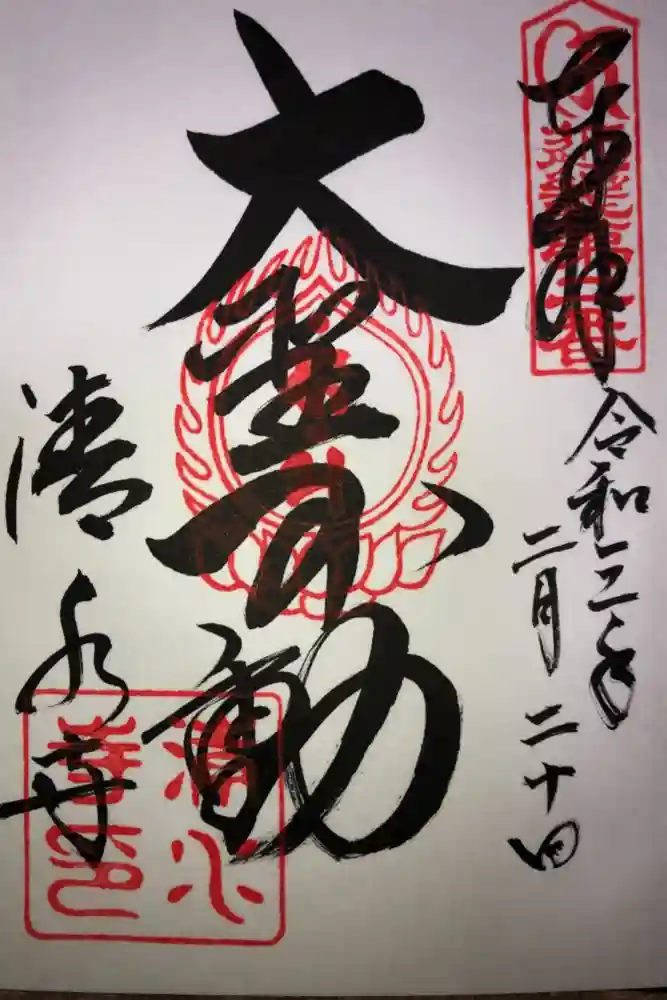 奉拝
令和三年
二月二十日
大聖不動
清水寺
清水
寺印